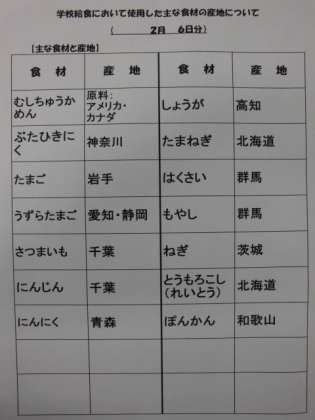 学校給食において使用した主な食材の産地について
( 2月 6日分)
[主な食材と産地]
食 材 産 地 食 材 産 地
むしちゅうかめん 原料:アメリカ・カナダ しょうが 高知
ぶたひきにく 神奈川 たまねぎ 北海道
たまご 岩手 はくさい 群馬
うずらたまご 愛知・静岡 もやし 群馬
さつまいも 千葉 ねぎ 茨城
にんじん 千葉 とうもろこし(れいとう) 北海道
にんにく 青森 ぽんかん 和歌山